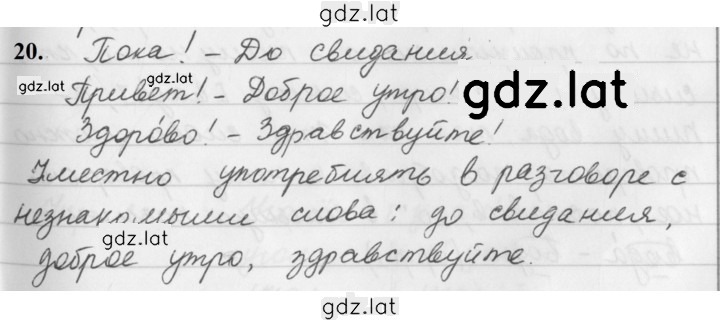 gdz.lat
20. Пока! - До свидания.
gdz.lat gdz.lat
Привет! - Доброе утро! gdz.lat
Здоро́во! - Здравствуйте!
Уместно употреблять в разговоре с
незнакомыми слова: до свидания,
gdz.lat
доброе утро, здравствуйте.
gdz.lat